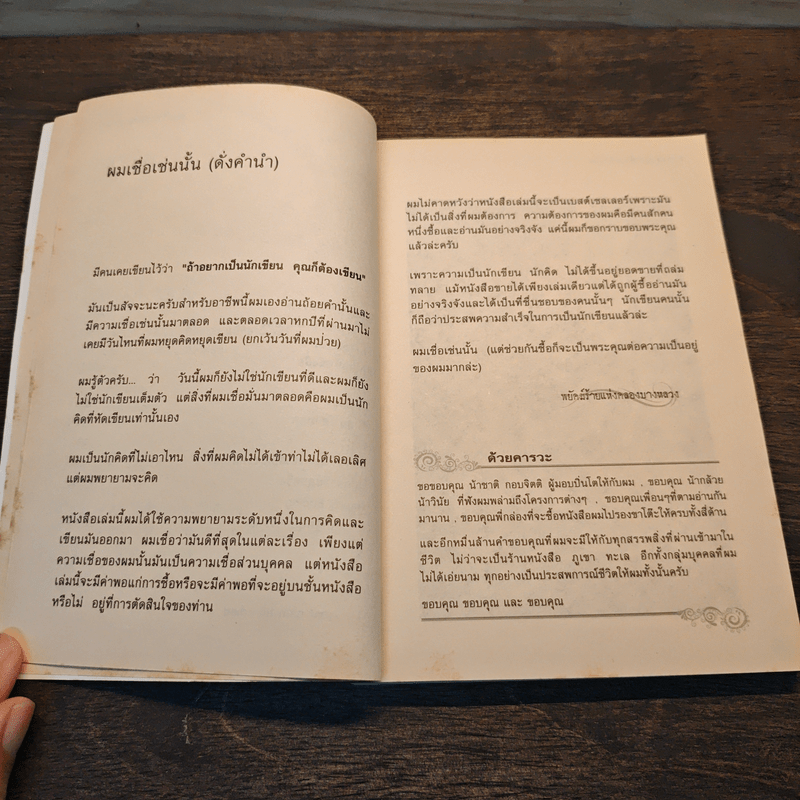 ผมเชื่อเช่นนั้น (ดั่งคำนำ)
มีคนเคยเขียนไว้ว่า "ถ้าอยากเป็นนักเขียน คุณก็ต้องเขียน"
มันเป็นสัจจะนะครับสำหรับอาชีพนี้ผมเองอ่านถ้อยคำนั้นและ
มีความเชื่อเช่นนั้นมาตลอด และตลอดเวลาหกปีที่ผ่านมาไม่
เคยมีวันไหนที่ผมหยุดคิดหยุดเขียน (ยกเว้นวันที่ผมป่วย)
ผมรู้ตัวครับ... ว่า วันนี้ผมก็ยังไม่ใช่นักเขียนที่ดีและผมก็ยัง
ไม่ใช่นักเขียนเต็มตัว แต่สิ่งที่ผมเชื่อมั่นมาตลอดคือผมเป็นนัก
คิดที่หัดเขียนเท่านั้นเอง
ผมเป็นนักคิดที่ไม่เอาไหน สิ่งที่ผมคิดไม่ได้เข้าท่าไม่ได้เลอเลิศ
แต่ผมพยายามจะคิด
หนังสือเล่มนี้ผมได้ใช้ความพยายามระดับหนึ่งในการคิดและ
เขียนมันออกมา ผมเชื่อว่ามันดีที่สุดในแต่ละเรื่อง เพียงแต่
ความเชื่อของผมนั้นมันเป็นความเชื่อส่วนบุคคล แต่หนังสือ
เล่มนี้จะมีค่าพอแก่การซื้อหรือจะมีค่าพอที่จะอยู่บนชั้นหนังสือ
หรือไม่ อยู่ที่การตัดสินใจของท่าน
ผมไม่คาดหวังว่าหนังสือเล่มนี้จะเป็นเบสต์เซลเลอร์เพราะมัน
ไม่ได้เป็นสิ่งที่ผมต้องการ ความต้องการของผมคือมีคนสักคน
หนึ่งซื้อและอ่านมันอย่างจริงจัง แค่นี้ผมก็ขอกราบขอบพระคุณ
แล้วล่ะครับ
เพราะความเป็นนักเขียน นักคิด ไม่ได้ขึ้นอยู่ยอดขายที่ถล่ม
ทลาย แม้หนังสือขายได้เพียงเล่มเดียวแต่ได้ถูกผู้ซื้ออ่านมัน
อย่างจริงจังและได้เป็นที่ชื่นชอบของคนนั้นๆ นักเขียนคนนั้น
ก็ถือว่าประสพความสำเร็จในการเป็นนักเขียนแล้วล่ะ
ผมเชื่อเช่นนั้น (แต่ช่วยกันซื้อก็จะเป็นพระคุณต่อความเป็นอยู่
ของผมมากล่ะ)
พยัคฆ์ร้ายแห่งคลองบางหลวง
ด้วยคารวะ
ขอขอบคุณ น้าชาติ กอบจิตติ ผู้มอบปิ่นโตให้กับผม , ขอบคุณ น้ากล้วย
น้าวินัย ที่ฟังผมพล่ามถึงโครงการต่างๆ , ขอบคุณเพื่อนๆที่ตามอ่านกัน
มานาน , ขอบคุณพี่กล่องที่จะซื้อหนังสือผมไปรองขาโต๊ะให้ครบทั้งสี่ด้าน
และอีกหมื่นล้านคำขอบคุณที่ผมจะมีให้กับทุกสรรพสิ่งที่ผ่านเข้ามาใน
ชีวิต ไม่ว่าจะเป็นร้านหนังสือ ภูเขา ทะเล อีกทั้งกลุ่มบุคคลที่ผม
ไม่ได้เอ่ยนาม ทุกอย่างเป็นประสพการณ์ชีวิตให้ผมทั้งนั้นครับ
ขอบคุณ ขอบคุณ และ ขอบคุณ